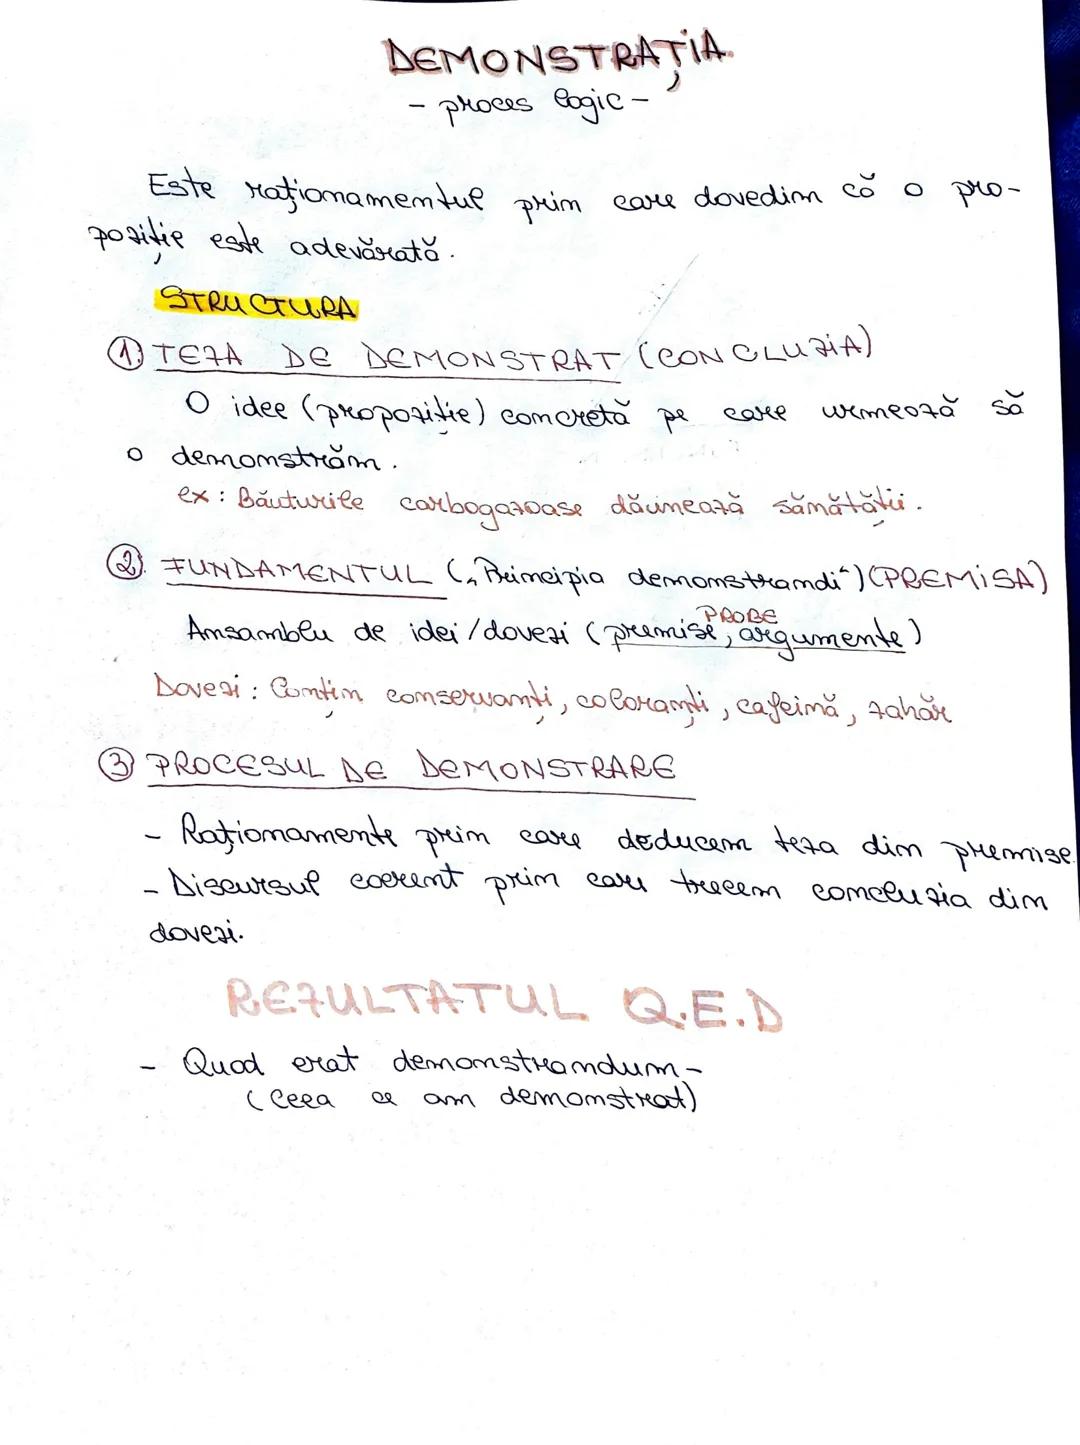 DEMONSTRAȚIA
- proces logic -
Este raționamentul prin care dovedim că o pro-
poziție este adevărată.
STRUCTURA
1. TEZA DE DEMONSTRAT (CONCLUZIA)
O idee (propoziție) concretă pe care urmează să
o demonstrăm.
ex: Băuturile carbogazoase dăunează sănătății.
2. FUNDAMENTUL („Principia demonstrandi“) (PREMISA)
PROBE
Ansamblu de idei/dovezi (premise, argumente)
Dovezi: Conțin conservanți, coloranți, cafeină, zahăr
3 PROCESUL DE DEMONSTRARE
- Raționamente prin care deducem teza din premise.
- Discursul coerent prin care trecem concluzia din
dovezi.
REZULTATUL Q.E.D
- Quod erat demonstrandum -
(Ceea ce am demonstrat)